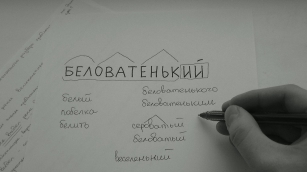 БЕЛОВАТЕНЬКИЙ
беловатенького
белый
беловатеньким
побелка
белить
сероватый
беловатый
веселенький